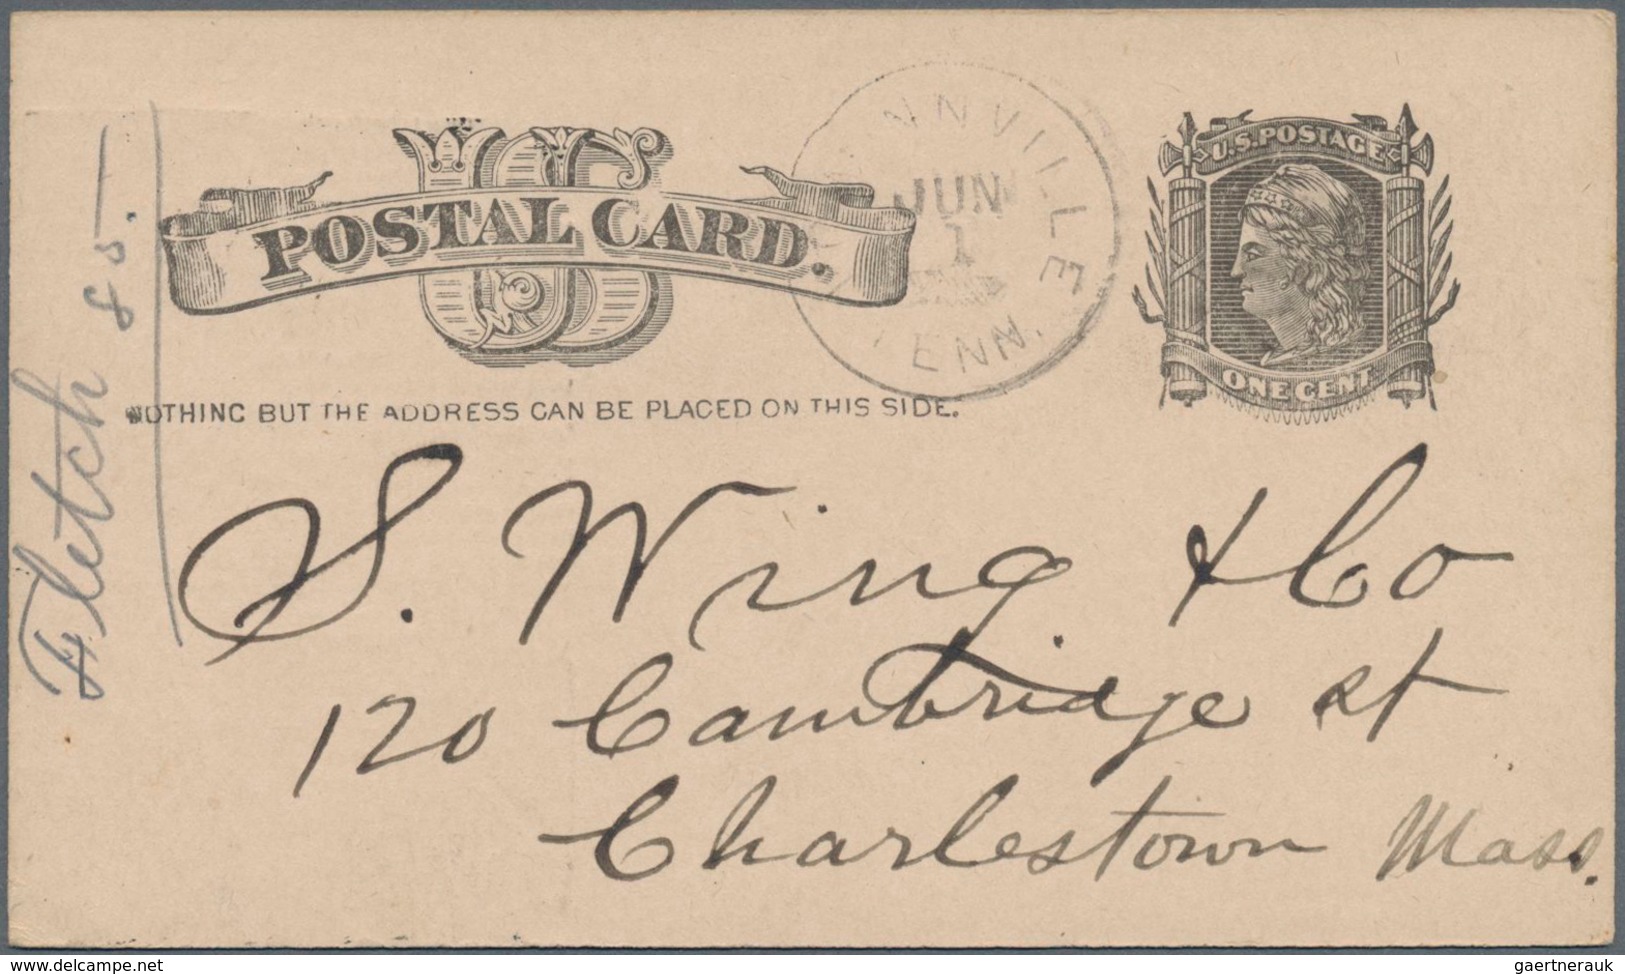 U.S. POSTAGE
US
POSTAL CARD.
JUN
1
TENN.
ONE CENT
NOTHING BUT THE ADDRESS CAN BE PLACED ON THIS SIDE.
Fletch 85.
S. Wing & Co
120 Cambridge st
Charlestown Mass.
www.delcampe.net
gaertnerauk